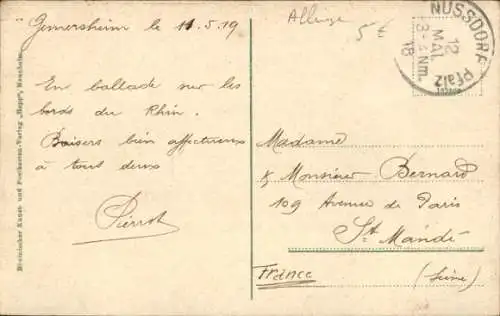 Germersheim le 11.5.19
En ballade sur les
bords du Rhin.
Baisers bien affectueux
à tous deux
Pierrot
Rheinischer Kunst- und Postkarten-Verlag „Rapp“, Mannheim.
5 €
NUSSDORF
Pfalz
12
MAI.
3-4Nm.
18
Madame
& Monsieur Bernard
109 Avenue de Paris
St Mandé
France (Seine)